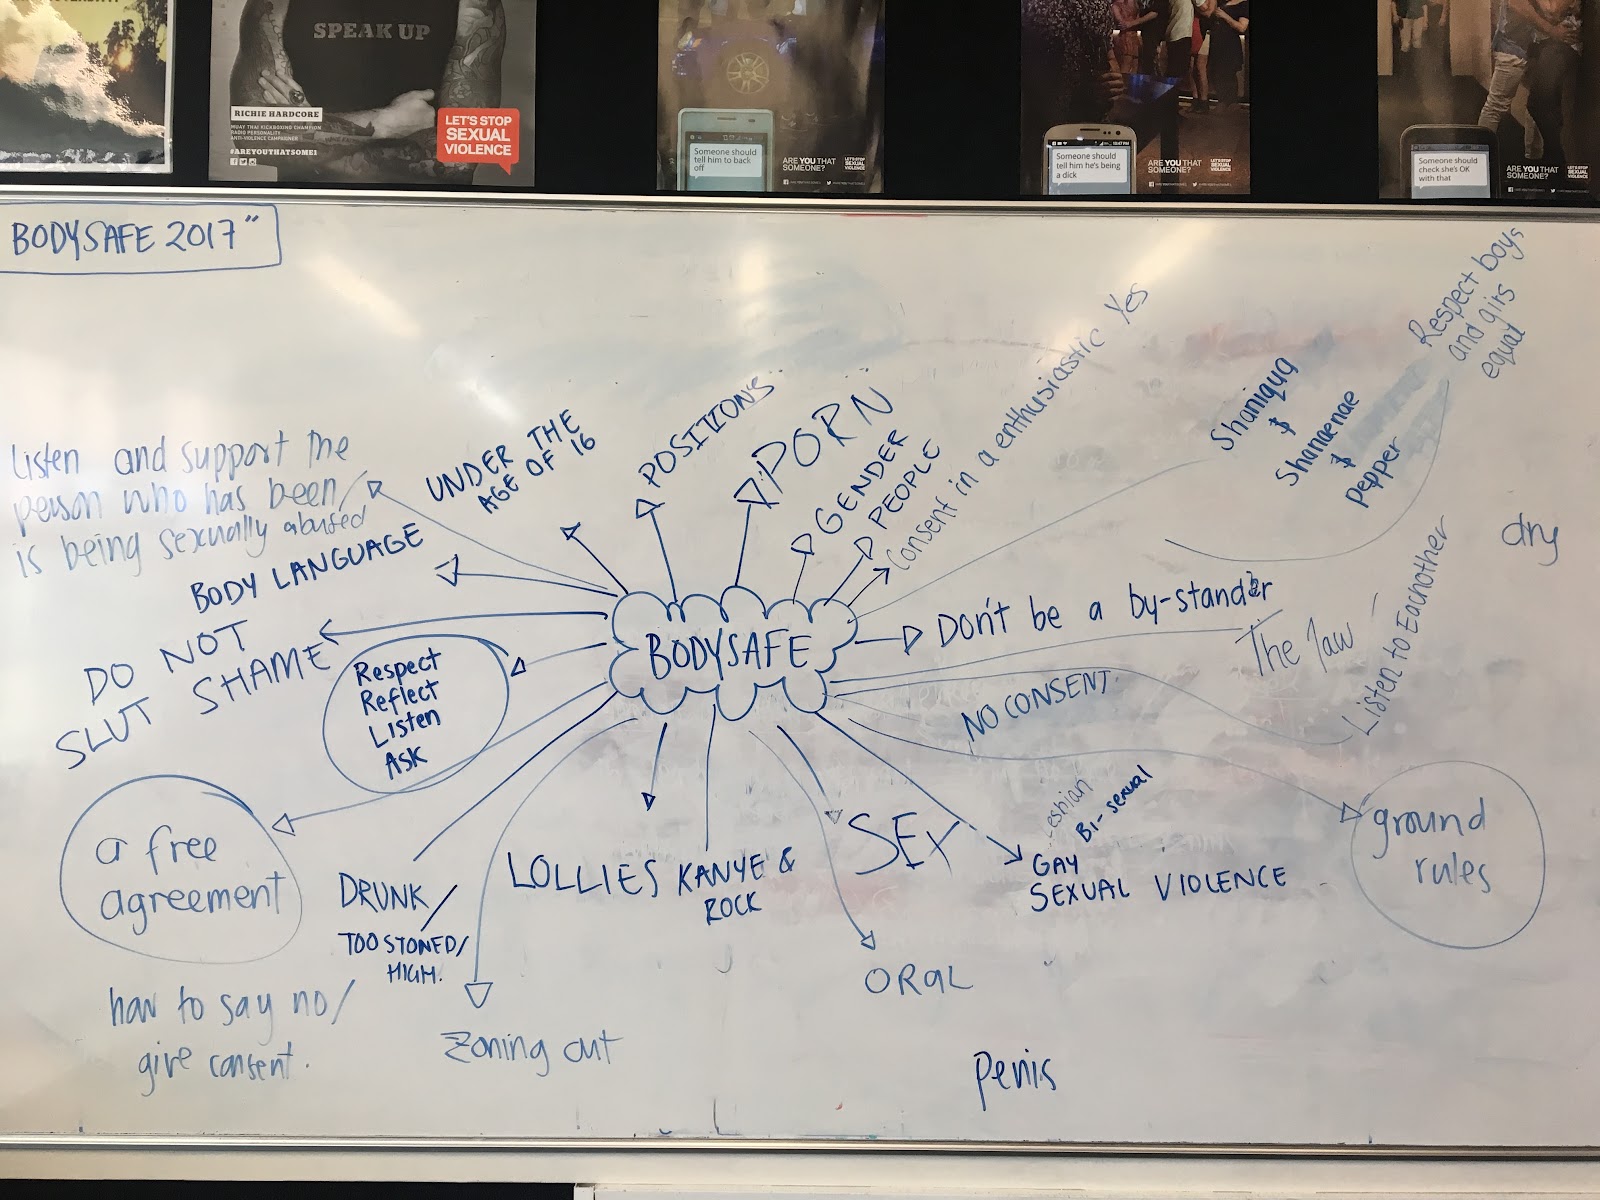 SPEAK UP
RICHIE HARDCORE
MUAY THAI KICKBOXING CHAMPION
RADIO PERSONALITY
ANTI-VIOLENCE CAMPAIGNER
#AREYOUTHATSOME1
LET'S STOP
SEXUAL
VIOLENCE
Someone should
tell him to back
off
ARE YOU THAT
SOMEONE?
LET'S STOP
SEXUAL
VIOLENCE
Someone should
tell him he's being
a dick
ARE YOU THAT
SOMEONE?
LET'S STOP
SEXUAL
VIOLENCE
Someone should
check she's OK
with that
ARE YOU THAT
SOMEONE?
LET'S STOP
SEXUAL
VIOLENCE
BODYSAFE 2017"
Listen and support the
person who has been/
is being sexually abused
UNDER THE
AGE OF 16
POSITIONS
PORN
GENDER
PEOPLE
Consent in a enthusiastic Yes
Shaniqua
$
Shanaenae
$
pepper
Respect boys
and girls
equal
dry
BODY LANGUAGE
DO NOT
SLUT SHAME
Respect
Reflect
Listen
ASK
BODYSAFE
Don't be a by-stander
The law
Listen to Eachother
NO CONSENT
ground
rules
a free
agreement
DRUNK/
TOO STONED/
HIGH.
LOLLIES
KANYE &
ROCK
SEX
Lesbian
Bi-sexual
GAY
SEXUAL VIOLENCE
ORAL
how to say no/
give consent.
Zoning out
penis